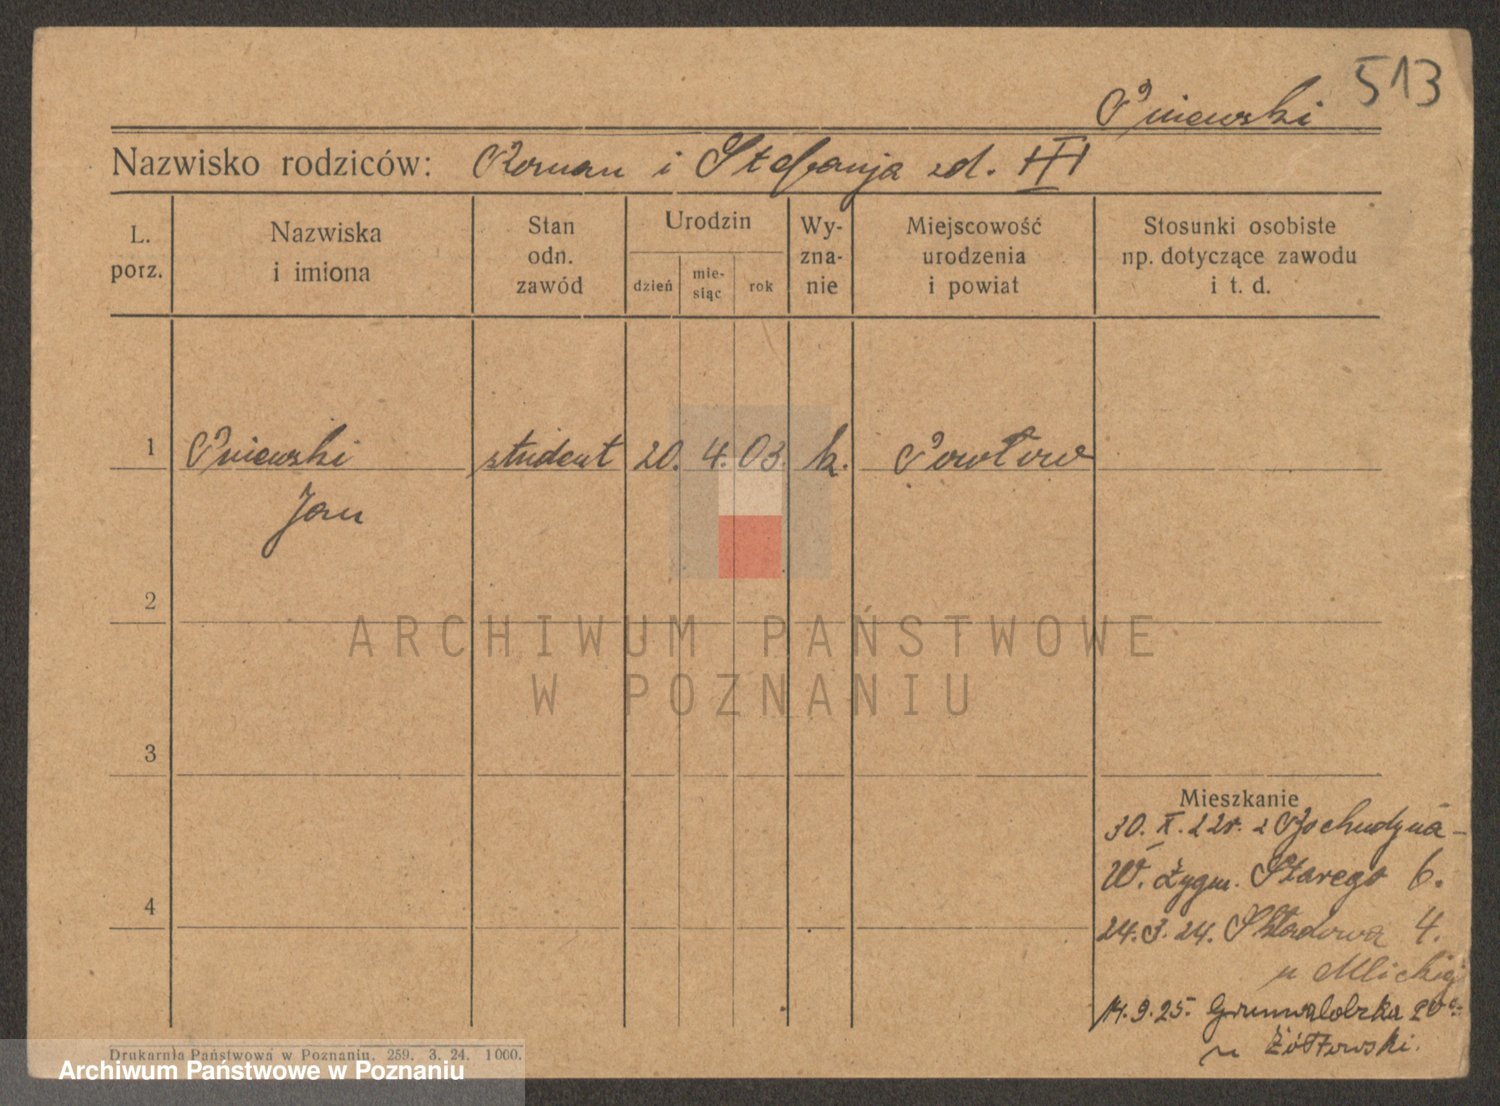 513
Pniewski
Nazwisko rodziców: Roman i Stefanja zd.
L. porz.
Nazwiska i imiona
Stan odn. zawód
Urodzin
dzień
mie-siąc
rok
Wy-zna-nie
Miejscowość urodzenia i powiat
Stosunki osobiste np. dotyczące zawodu i t. d.
1 Pniewski student 20. 4. 03. k.
Jan
2
ARCHIWUM PAŃSTWOWE
W POZNANIU
3
Mieszkanie
30. X. 22r. z
W. Zygm. Starego 6.
4
24.3.24. Składowa 4.
u
14.9.25. Grunwaldzka
u Żółtowski.
Drukarnia Państwowa w Poznaniu. 259. 3. 24. 1000.
Archiwum Państwowe w Poznaniu